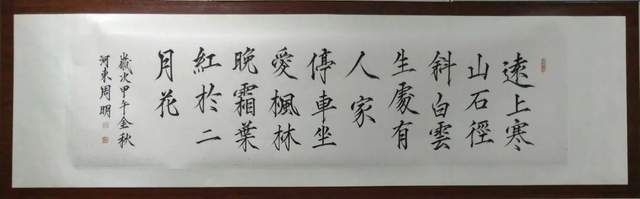 遠上寒
山石徑
斜白雲
生處有
人家
停車坐
愛楓林
晚霜葉
紅於二
月花
歲次甲午金秋
河東周明